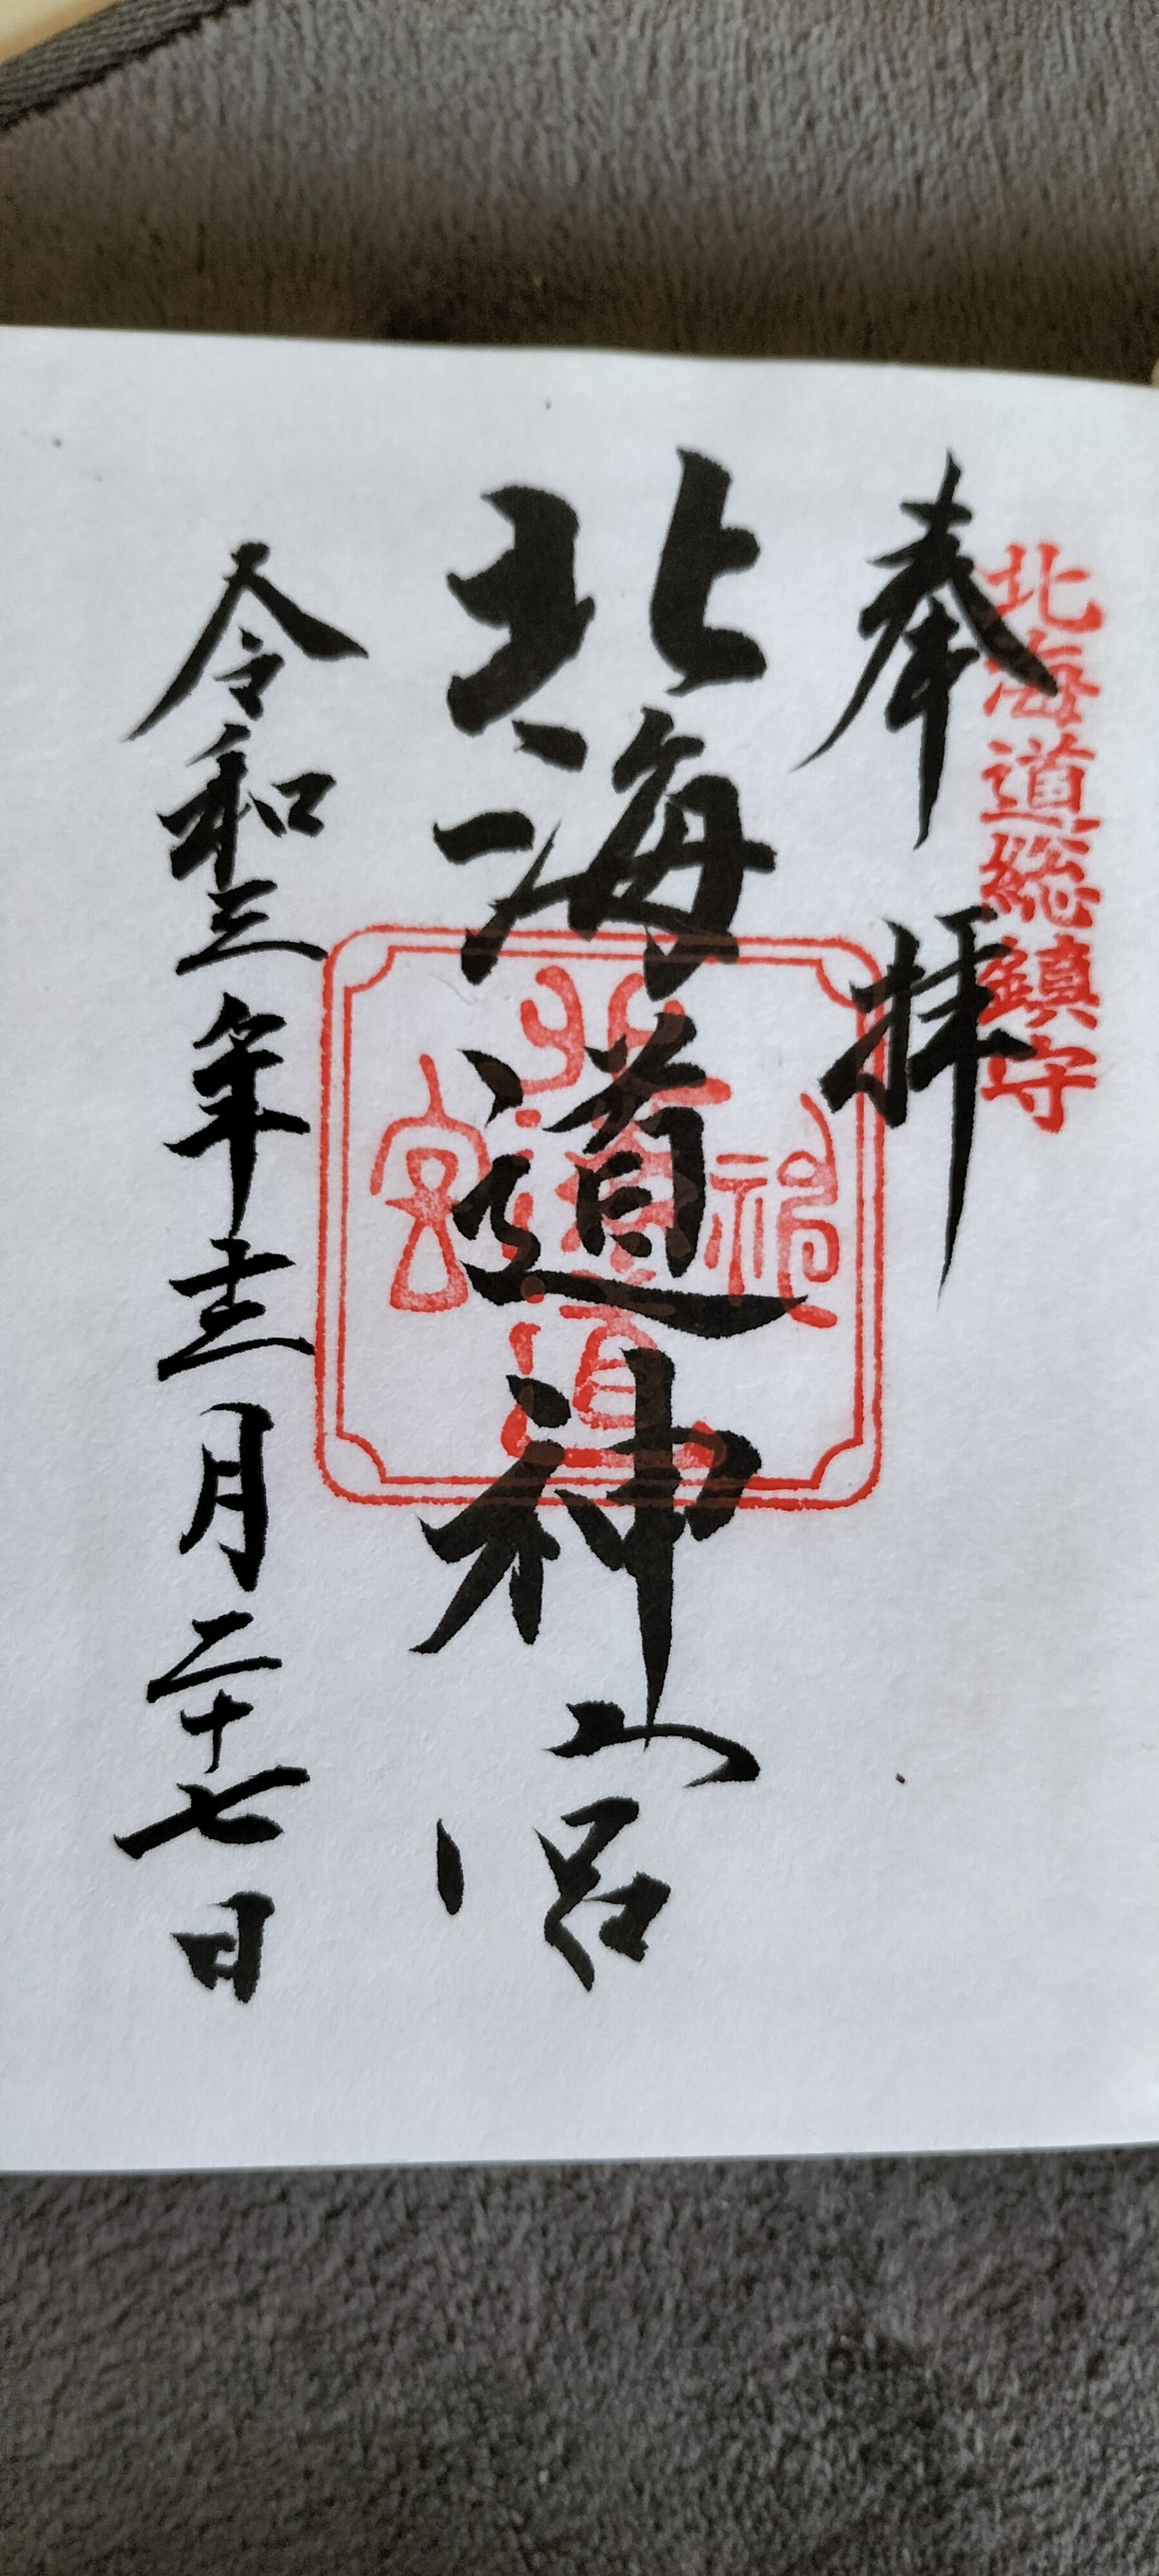 北海道総鎮守
奉拝
北海道神宮
北海道神宮
令和三年十二月二十七日